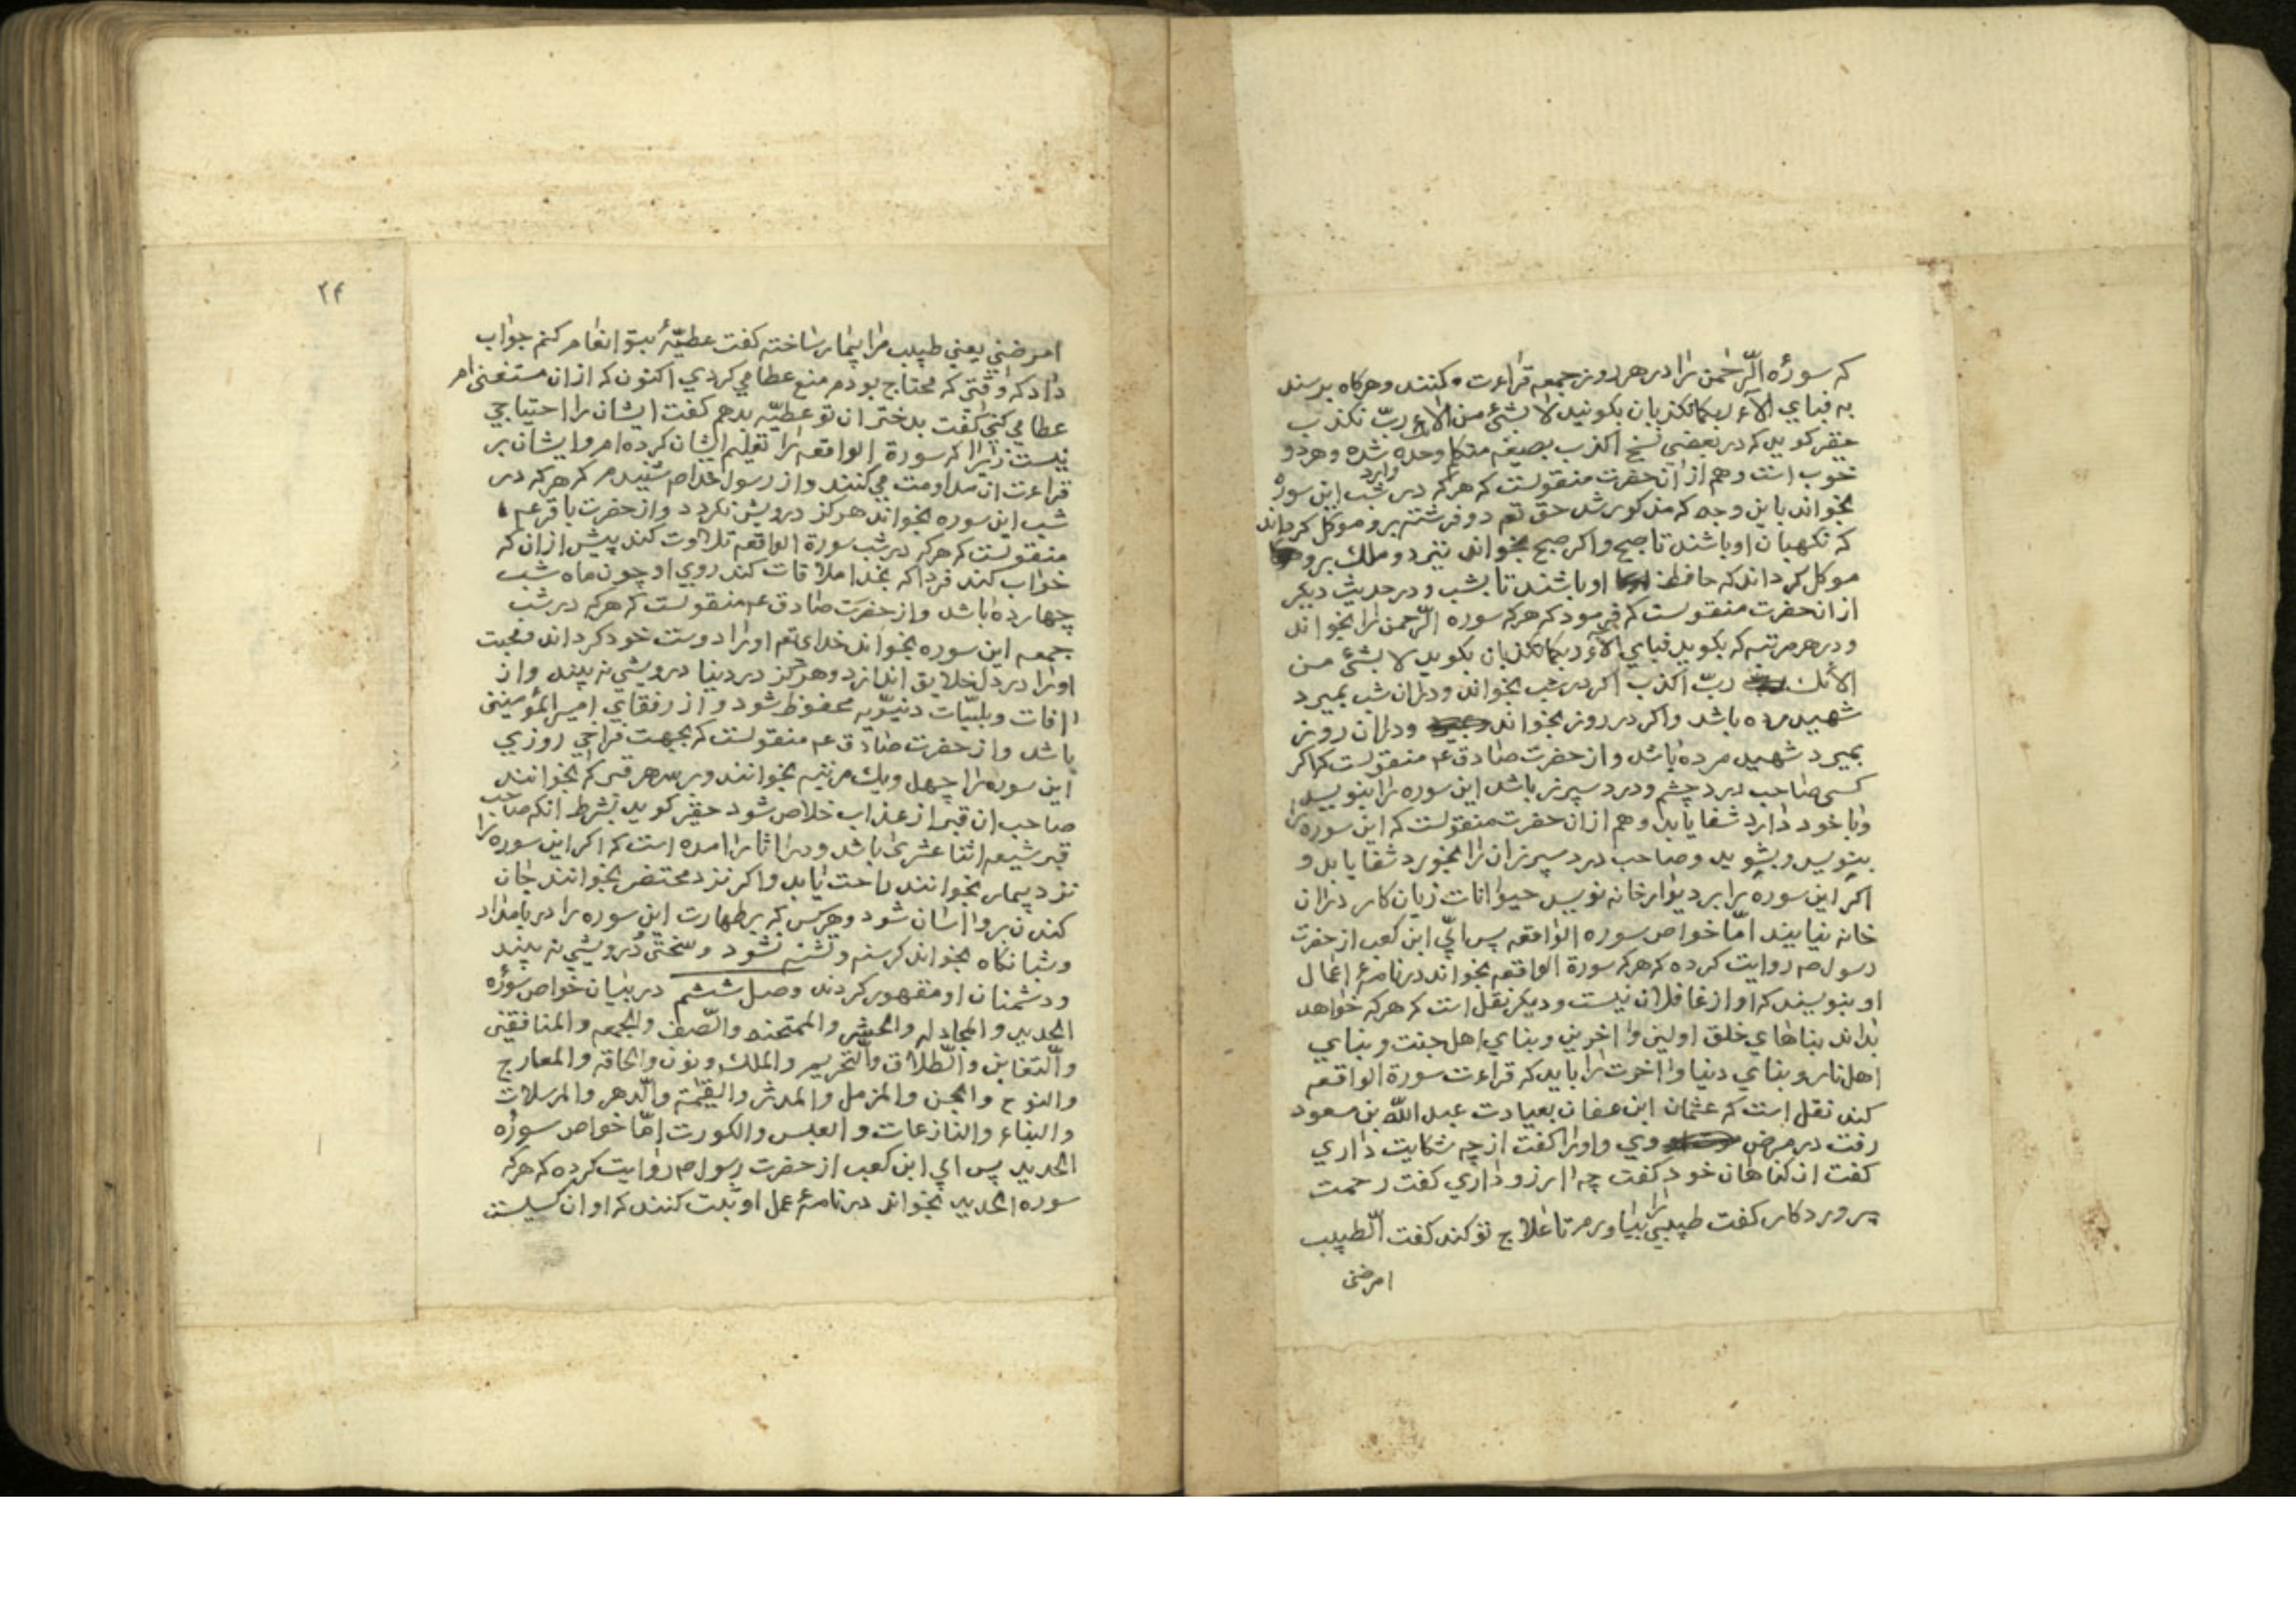 که سورهٔ الرّحمن را در هر روز جمعه قراءت کنند و هرکاه برسند
به فبای الآء ربکما تکذبان بکویند لا بشئ من الاء ربّ نکذب
حقیر کوید که در بعضی نسخ اکذب بصیغه متکلم وحده شده و هر دو
خوب است و هم از آنحضرت منقولست که هرکه در شب این سوره
بخواند باین وجه که مذکور شد حق تع دو فرشته برو موکل کرداند
که نکهبان او باشند تا صبح و اکر صبح بخواند نیز دو ملک برو
موکل کرداند که حافظ او باشند تا بشب و در حدیث دیکر
از انحضرت منقولست که فرمود که هرکه سوره الرّحمن را بخواند
و در هر مرتبه که بکوید فبای الآء ربکما تکذبان بکوید لا بشئ من
الائک ربّ اکذب اکر در شب بخواند و دران شب بمیرد
شهید مرده باشد و اکر در روز بخواند و دران روز
بمیرد شهید مرده باشد و از حضرت صادق ع منقولست که اکر
کسی صاحب درد چشم و درد سپرز باشد این سوره را بنویسد
و با خود دارد شفا یابد و هم ازان حضرت منقولست که این سوره را
بنویسد و بشوید و صاحب درد سپرز ان را بخورد شفا یابد و
اکر این سوره را بر دیوار خانه نویسد حیوانات زیان کار دران
خانه نیایند امّا خواص سوره الواقعه پس ابیّ ابن کعب از حضرت
رسول ص روایت کرده که هرکه سورة الواقعه بخواند در نامهٔ اعمال
او بنویسند که او از غافلان نیست و دیکر نقل است که هرکه خواهد
بداند بناهای خلق اولین و اخرین و بنای اهل جنت و بنای
اهل نار و بنای دنیا و اخرت را باید که قراءت سورة الواقعه
کند نقل است که عثمان ابن عفان بعیادت عبد اللّه بن مسعود
رفت در مرض وی و او را کفت از چه شکایت داری
کفت از کناهان خود کفت چه ارزو داری کفت رحمت
پروردکار کفت طبیبی را بیاورم تا علاج تو کند کفت الطبیب
امرضنی
۲۴
امرضنی یعنی طبیب مرا بیمار ساخته کفت عطیّهٔ بتو انعام کنم جواب
داد که وقتی که محتاج بودم منع عطا می کردی اکنون که ازان مستغنی ام
عطا می کنی کفت بدختران تو عطیّه بدهم کفت ایشان را احتیاجی
نیست زیرا که سورة الواقعه را تعلیم ایشان کرده ام و ایشان بر
قراءت ان مداومت می کنند و از رسول خدا ص شنیدم که هرکه در
شب این سوره بخواند هرکز درویش نکردد و از حضرت باقر ع
منقولست که هرکه در شب سورة الواقعه تلاوت کند پیش ازان که
خواب کند فردا که بخدا ملاقات کند روی او چون ماه شب
چهارده باشد و از حضرت صادق ع منقولست که هرکه در شب
جمعه این سوره بخواند خدای تع او را دوست خود کرداند و محبت
او را در دل خلایق اندازد و هرکز در دنیا درویشی نه بیند و از
افات و بلیّات دنیویه محفوظ شود و از رفقای امیر المؤمنین
باشد و از حضرت صادق ع منقولست که بجهت فراخی روزی
این سوره را چهل و یک مرتبه بخوانند و بر سر هر قبر که بخوانند
صاحب ان قبر از عذاب خلاص شود حقیر کوید بشرط انکه صاحب
قبر شیعه اثنا عشری باشد و در اثار امده است که اکر این سوره را
نزد بیمار بخوانند راحت یابد و اکر نزد محتضر بخوانند جان
کندن بر او اسان شود و هر کس که بر طهارت این سوره را در بامداد
و شبانکاه بخواند کرسنه و تشنه نشود و سختی درویشی نه بیند
و دشمنان او مقهور کردند وصل ششم در بیان خواص سورهٔ
الحدید و المجادله و الحشر و الممتحنه والصّف والجمعه والمنافقین
والتّغابن والطّلاق والتّحریم والملک ونون والحاقه والمعارج
والنوح والجن والمزمل والمدثر والقیٰمة والدّهر والمرسلات
والنباء والنازعات و العبس والکورت امّا خواص سورهٔ
الحدید پس ابی ابن کعب از حضرت رسول ص روایت کرده که هرکه
سوره الحدید بخواند در نامهٔ عمل او ثبت کنند که او ان کسیست